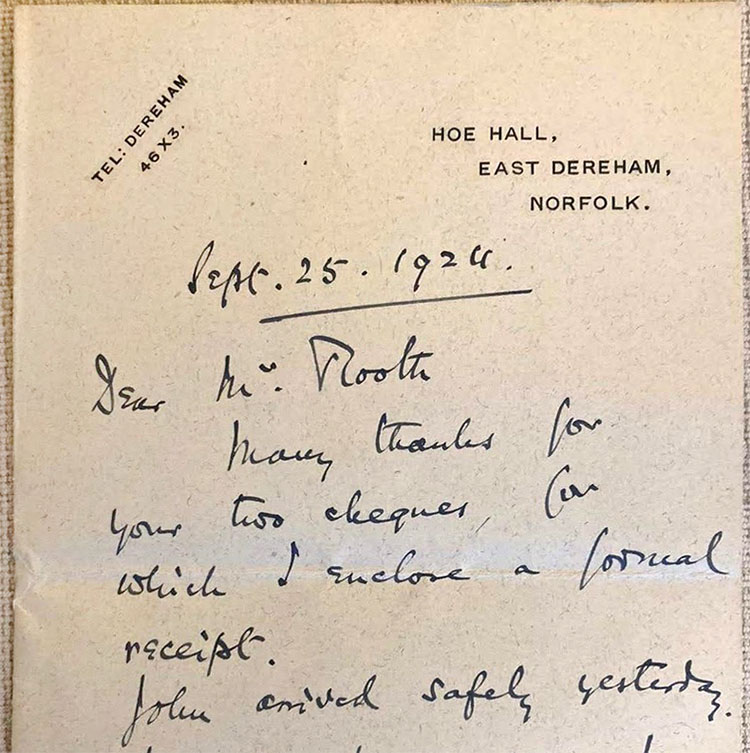 TEL: DEREHAM
46X3.
HOE HALL,
EAST DEREHAM,
NORFOLK.
Sept. 25. 1924.
Dear Mr. Rooth
Many thanks for
your two cheques, for
which I enclose a formal
receipt.
John arrived safely yesterday.